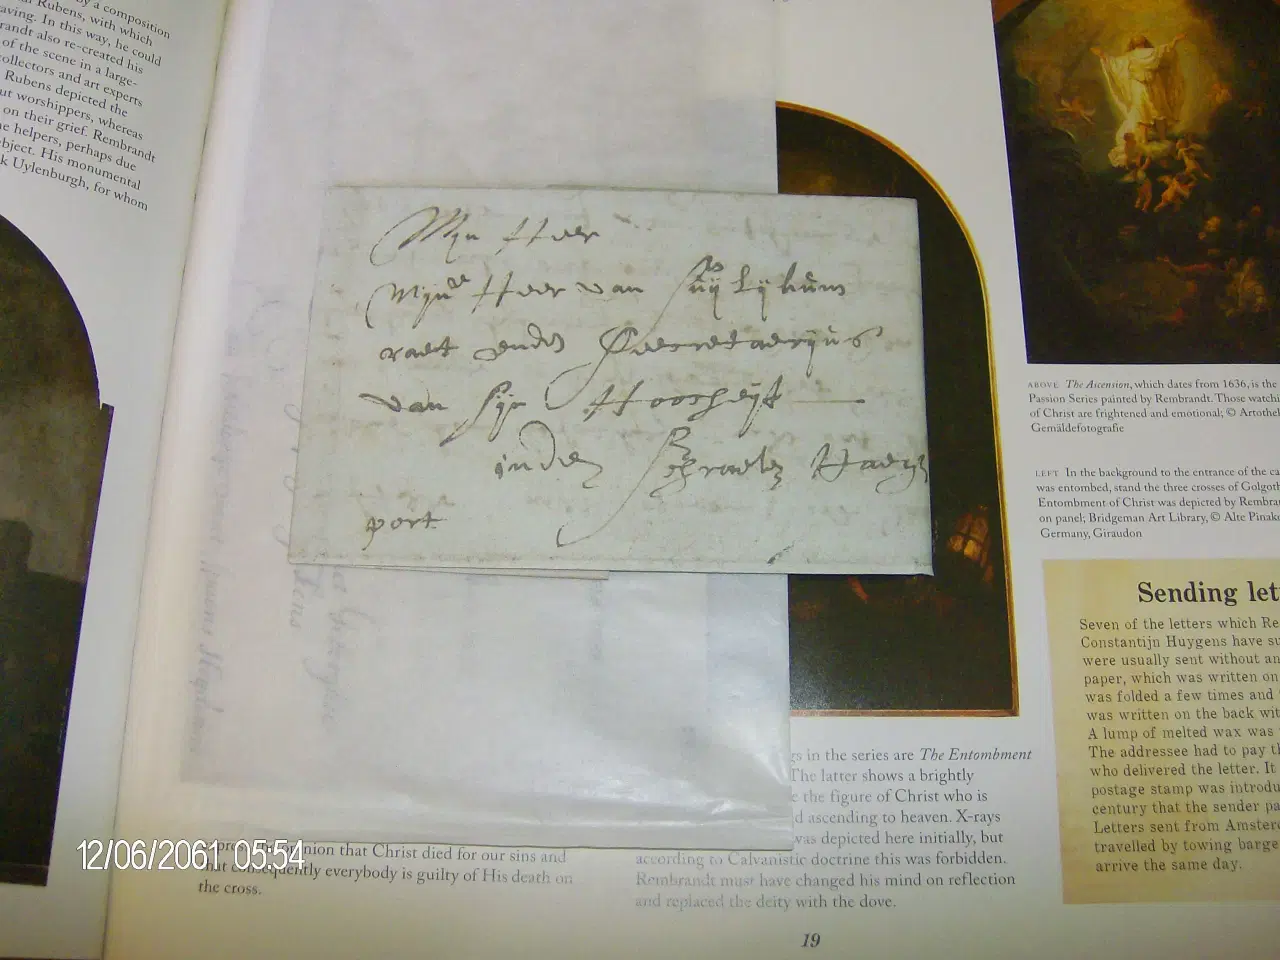 by a composition
Rubens, with which
aving. In this way, he could
randt also re-created his
of the scene in a large-
ollectors and art experts
Rubens depicted the
ut worshippers, whereas
on their grief. Rembrandt
e helpers, perhaps due
bject. His monumental
k Uylenburgh, for whom
Myn Heer
Mijne Heer van Suylykum
raet ende Secretaerijus
van sijn Hoocheyt
inden Schraelen Haege
port
ABOVE The Ascension, which dates from 1636, is the
Passion Series painted by Rembrandt. Those watchi
of Christ are frightened and emotional; © Artothe
Gemäldefotografie
LEFT In the background to the entrance of the ca
was entombed, stand the three crosses of Golgot
Entombment of Christ was depicted by Rembra
on panel; Bridgeman Art Library, © Alte Pinak
Germany, Giraudon
Sending let
Seven of the letters which Re
Constantijn Huygens have su
were usually sent without an
paper, which was written on
was folded a few times and
was written on the back wit
A lump of melted wax was
The addressee had to pay th
who delivered the letter. It
postage stamp was introdu
century that the sender pa
Letters sent from Amster
travelled by towing barge
arrive the same day.
opinion that Christ died for our sins and
that consequently everybody is guilty of His death on
the cross.
gs in the series are The Entombment
The latter shows a brightly
the figure of Christ who is
d ascending to heaven. X-rays
was depicted here initially, but
according to Calvanistic doctrine this was forbidden.
Rembrandt must have changed his mind on reflection
and replaced the deity with the dove.
19
12/06/2061 05:54